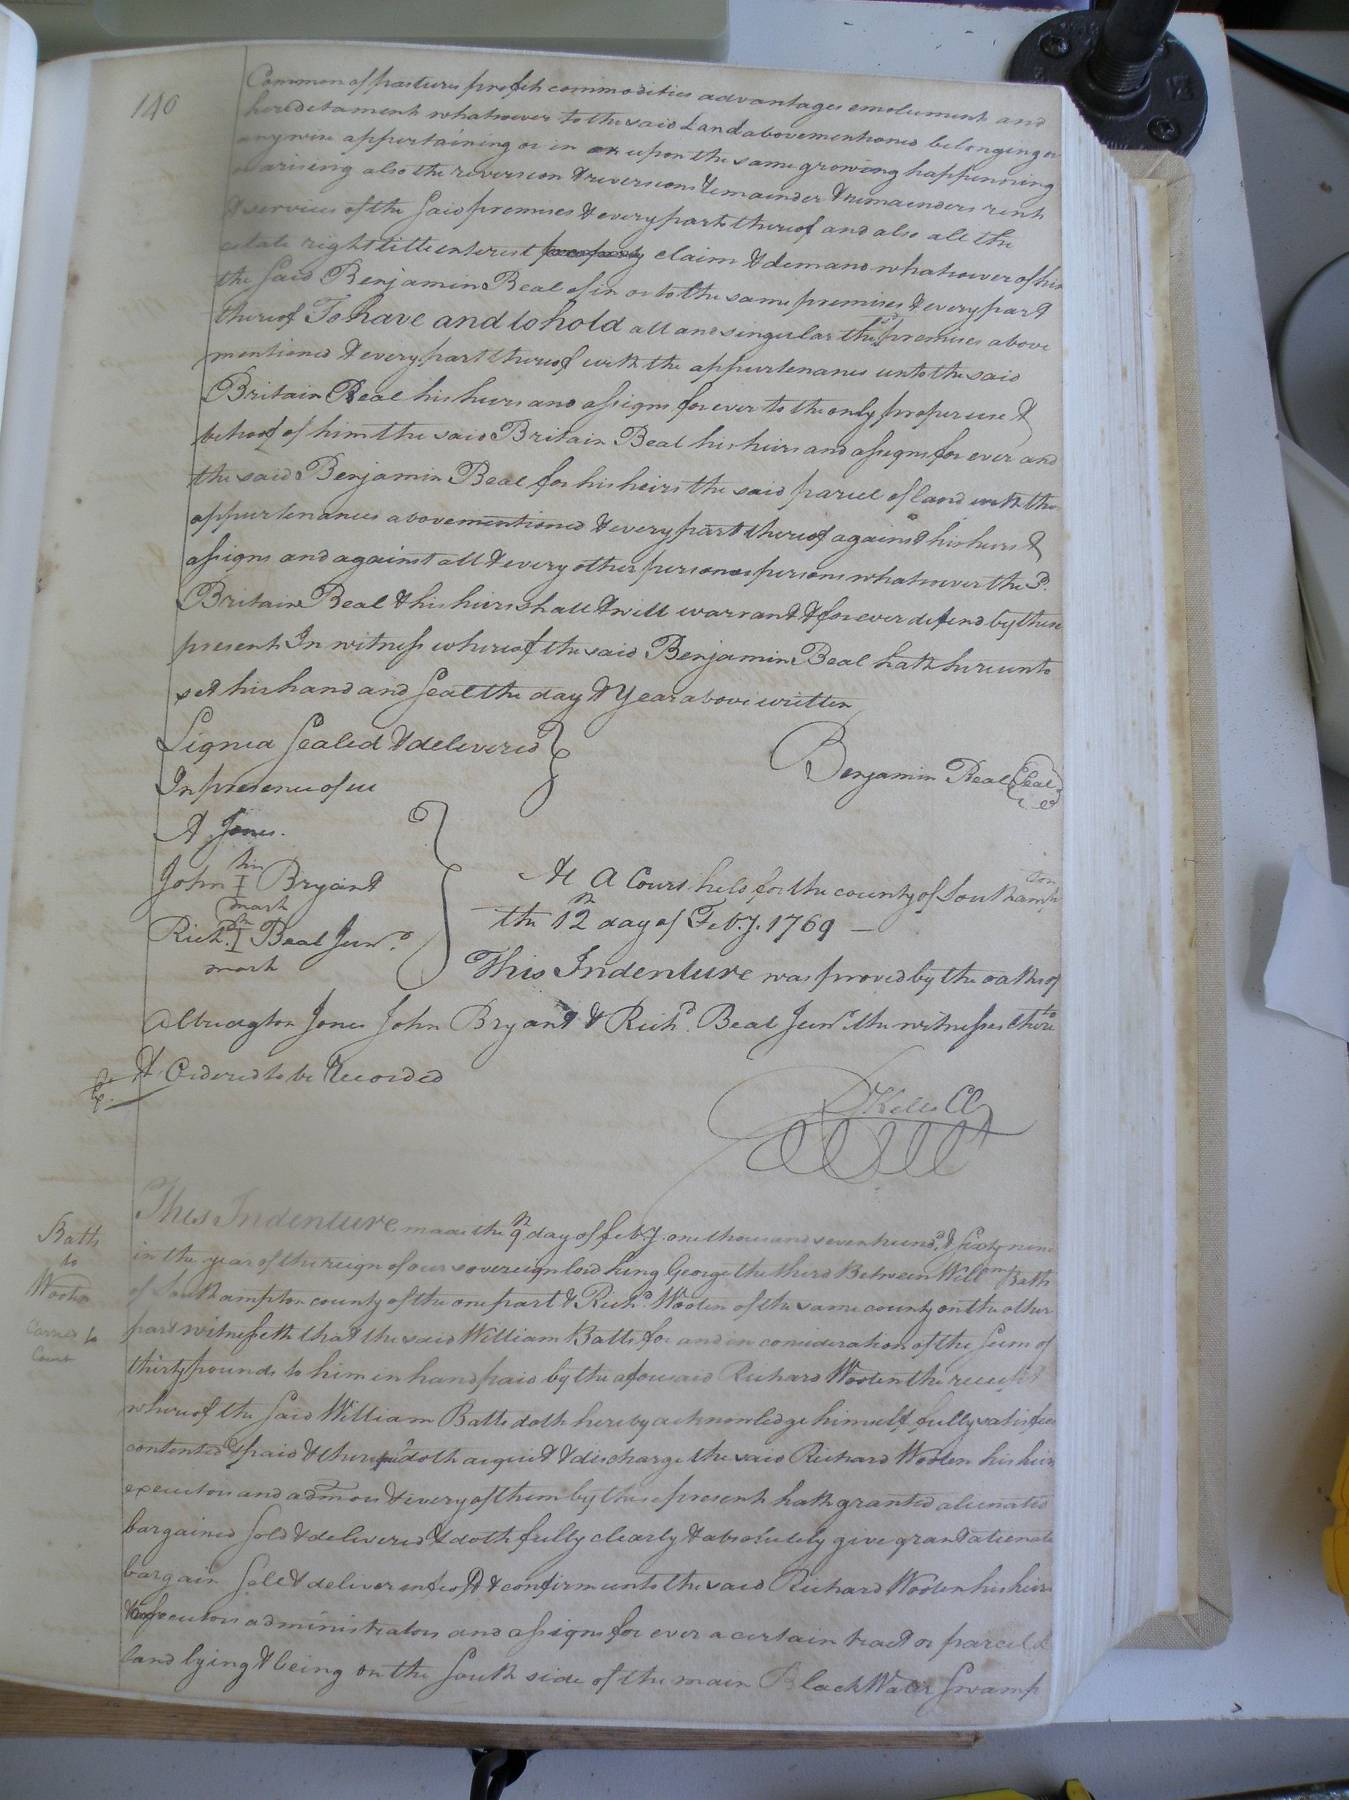 140
Common of pastures profits commodities advantages emolument and
heredetament whatsoever to the said Land abovementioned belonging or
anywise appertaining or in or upon the same growing happenning
or arising also the reversion & reversions remainder & remainders rents
& services of the said premises & every part thereof and also all the
estate right title enterest claim & demand whatsoever of him
the said Benjamin Beal of in or to the same premises & every part
thereof To have and to hold all and singular the sd. premises above
mentioned & every part thereof with the appurtenances unto the said
Britain Beal his heirs and assigns forever to the only proper use &
behoof of him the said Britain Beal his heirs and assigns for ever and
the said Benjamin Beal for his heirs the said parcel of land with the
appurtenances abovementioned & every part thereof against his heirs &
assigns and against all & every other person or persons whatsoever the sd.
Britain Beal & his heirs shall & will warrant & forever defend by these
present In witness whereof the said Benjamin Beal hath hereunto
set his hand and seal the day & year above written
Signed sealed & delivered
In presence of us
Benjamin Beal Seal
A Jones.
John his I mark Bryant
Richd. his I mark Beal Junr.
At a Court held for the county of Southampton
the 12th day of Feby. 1769 —
This Indenture was proved by the oaths of
Albridgton Jones John Bryant & Richd. Beal Junr. the witnesses thereto
& Ordered to be Recorded
Ex.
R Kello CC
Batts
to
Wooten
Carried to
Court
This Indenture made the 9th day of feby. one thousand seven hundd. & sixty nine
in the year of the reign of our sovereign lord king George the third Between Willm. Batts
of Southampton county of the one part & Richd. Wooten of the same county on the other
part witnesseth that the said William Batts for and in consideration of the sum of
thirty pounds to him in hand paid by the aforesaid Richard Wooten the receipt
whereof the said William Batts doth hereby acknowledge himself fully satisfied
contented & paid & thereof doth acquit & discharge the said Richard Wooten his heirs
executors and admors & every of them by these present hath granted alienated
bargained sold & delivered & doth fully clearly & absolutely give grant alienate
bargain sell & deliver infeoff & confirm unto the said Richard Wooten his heirs
executors administrators and assigns for ever a certain tract or parcel of
land lying & being on the south side of the main Black Water Swamp